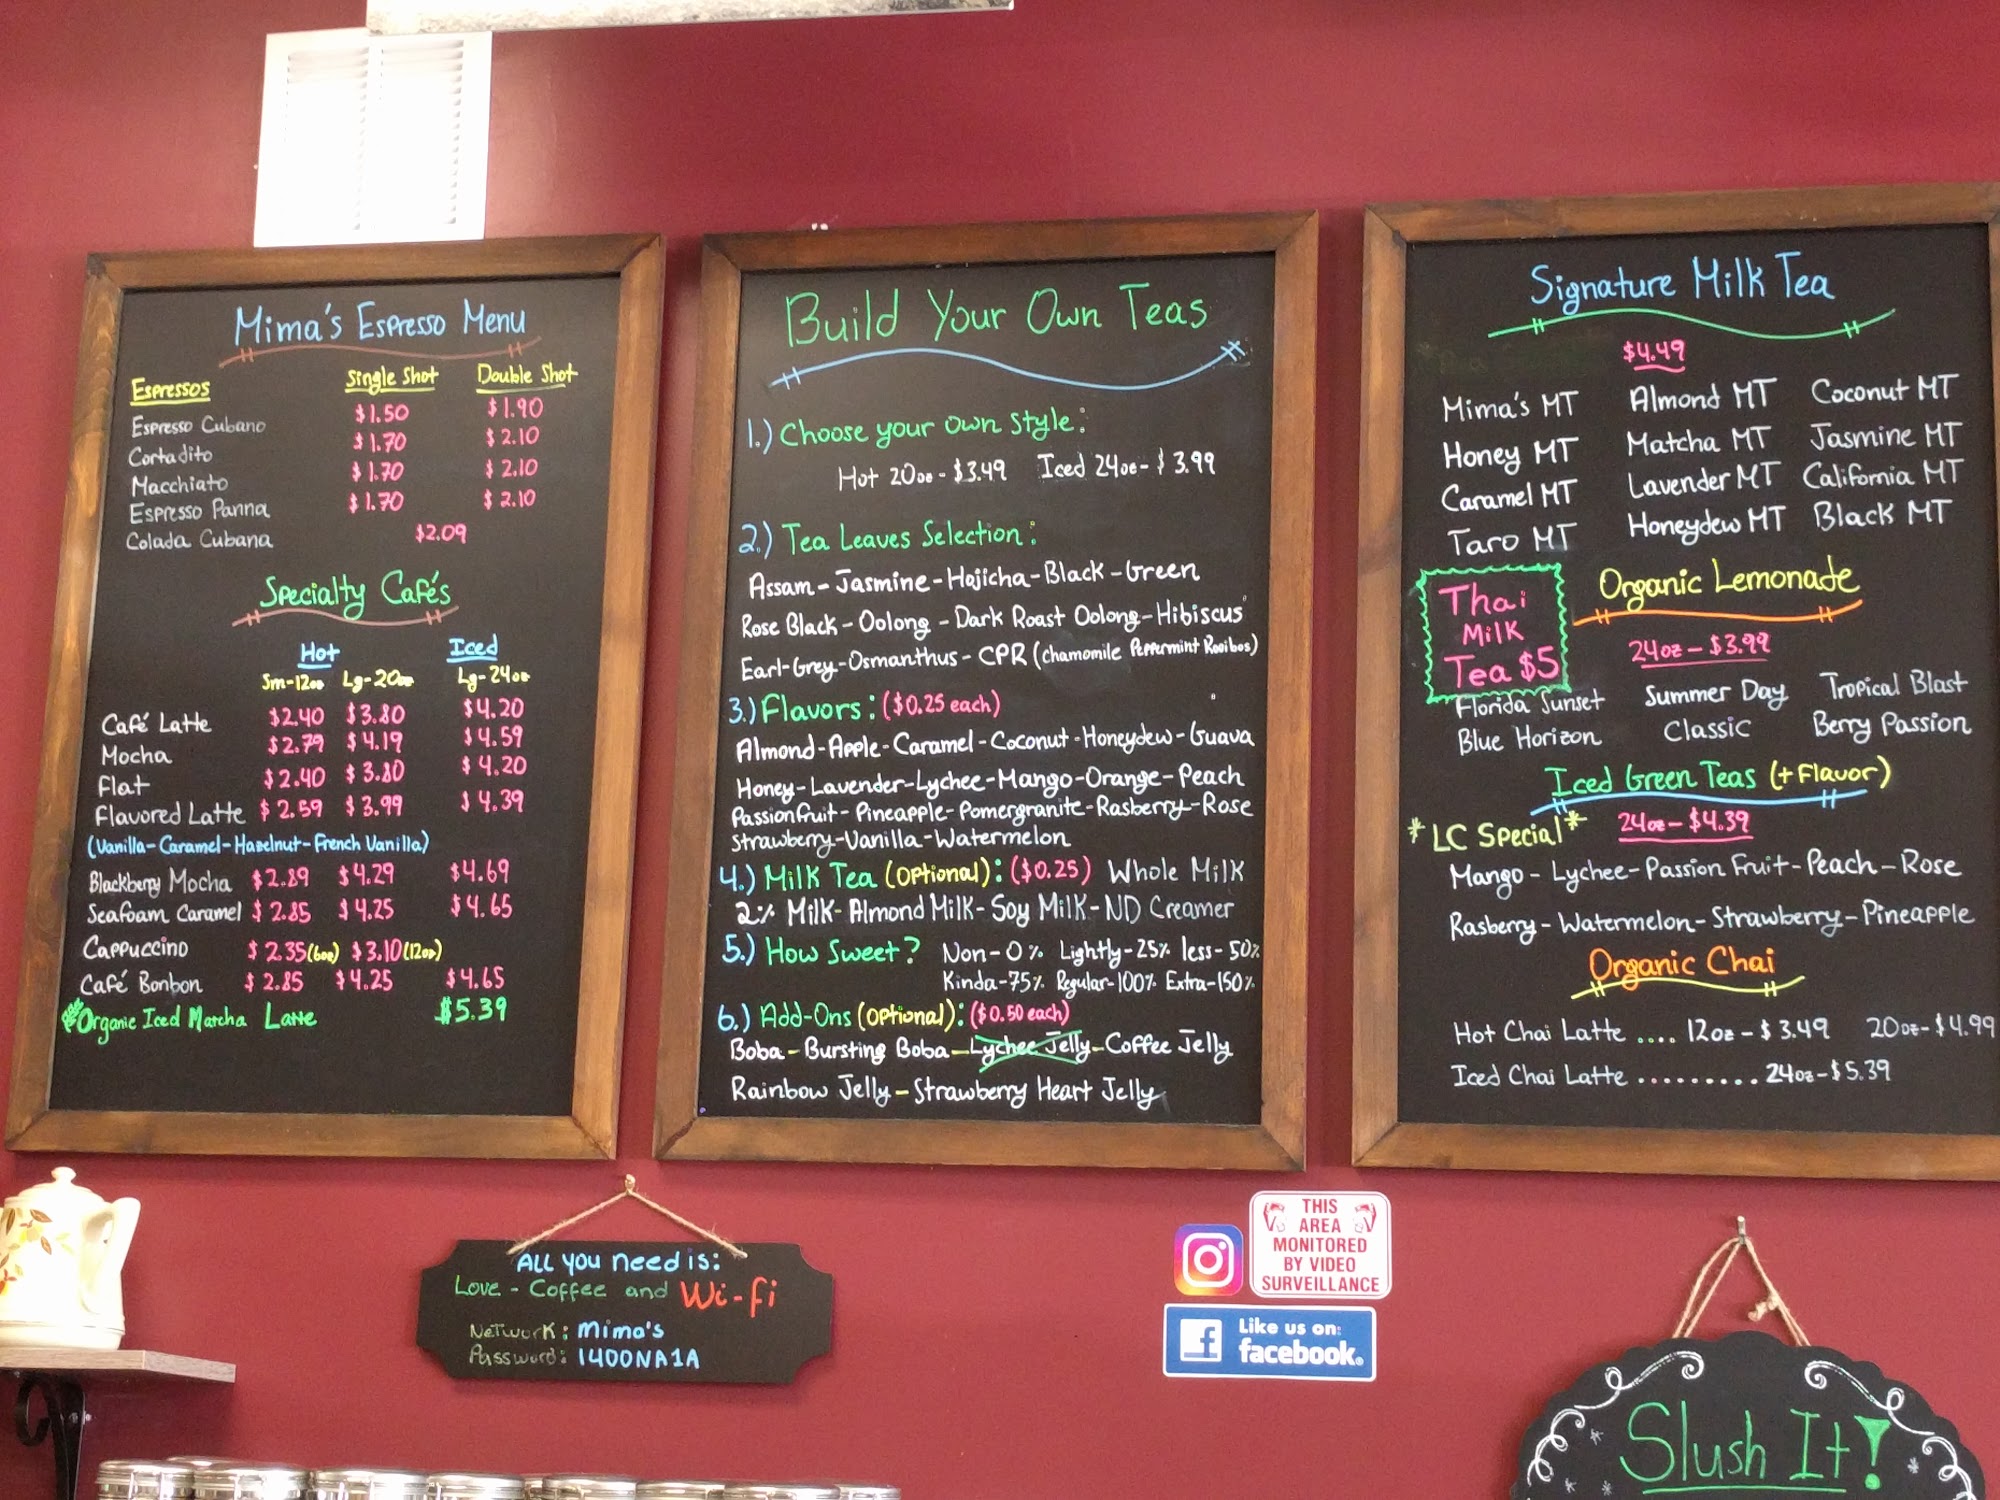 Mima's Espresso Menu
Espressos Single Shot Double Shot
Espresso Cubano $1.50 $1.90
Cortadito $1.70 $2.10
Macchiato $1.70 $2.10
Espresso Panna $1.70 $2.10
Colada Cubana $2.09
Specialty Café's
Hot Iced
Sm-12oz Lg-20oz Lg-24oz
Café Latte $2.40 $3.80 $4.20
Mocha $2.79 $4.19 $4.59
Flat $2.40 $3.80 $4.20
Flavored Latte $2.59 $3.99 $4.39
(Vanilla-Caramel-Hazelnut-French Vanilla)
Blackberry Mocha $2.89 $4.29 $4.69
Seafoam Caramel $2.85 $4.25 $4.65
Cappuccino $2.35(6oz) $3.10(12oz)
Café Bonbon $2.85 $4.25 $4.65
Organic Iced Matcha Latte $5.39
Build Your Own Teas
1.) Choose your own style:
Hot 20oz - $3.49 Iced 24oz - $3.99
2.) Tea Leaves Selection:
Assam - Jasmine - Hojicha - Black - Green
Rose Black - Oolong - Dark Roast Oolong - Hibiscus
Earl-Grey - Osmanthus - CPR (Chamomile Peppermint Rooibos)
3.) Flavors: ($0.25 each)
Almond - Apple - Caramel - Coconut - Honeydew - Guava
Honey - Lavender - Lychee - Mango - Orange - Peach
Passionfruit - Pineapple - Pomergranite - Rasberry - Rose
Strawberry - Vanilla - Watermelon
4.) Milk Tea (Optional): ($0.25) Whole Milk
2% Milk - Almond Milk - Soy Milk - ND Creamer
5.) How Sweet? Non-0% Lightly-25% less-50%
Kinda-75% Regular-100% Extra-150%
6.) Add-Ons (Optional): ($0.50 each)
Boba - Bursting Boba - Lychee Jelly - Coffee Jelly
Rainbow Jelly - Strawberry Heart Jelly
Signature Milk Tea
$4.49
Mima's MT Almond MT Coconut MT
Honey MT Matcha MT Jasmine MT
Caramel MT Lavender MT California MT
Taro MT Honeydew MT Black MT
Thai
Milk
Tea $5
Organic Lemonade
24oz - $3.99
Florida Sunset Summer Day Tropical Blast
Blue Horizon Classic Berry Passion
Iced Green Teas (+Flavor)
*LC Special* 24oz - $4.39
Mango - Lychee - Passion Fruit - Peach - Rose
Rasberry - Watermelon - Strawberry - Pineapple
Organic Chai
Hot Chai Latte .... 12oz - $3.49 20oz - $4.99
Iced Chai Latte ......... 24oz - $5.39
All you need is:
Love - Coffee and Wi-fi
Network: Mima's
Password: 1400NA1A
THIS
AREA
MONITORED
BY VIDEO
SURVEILLANCE
f Like us on:
facebook.
Slush It!